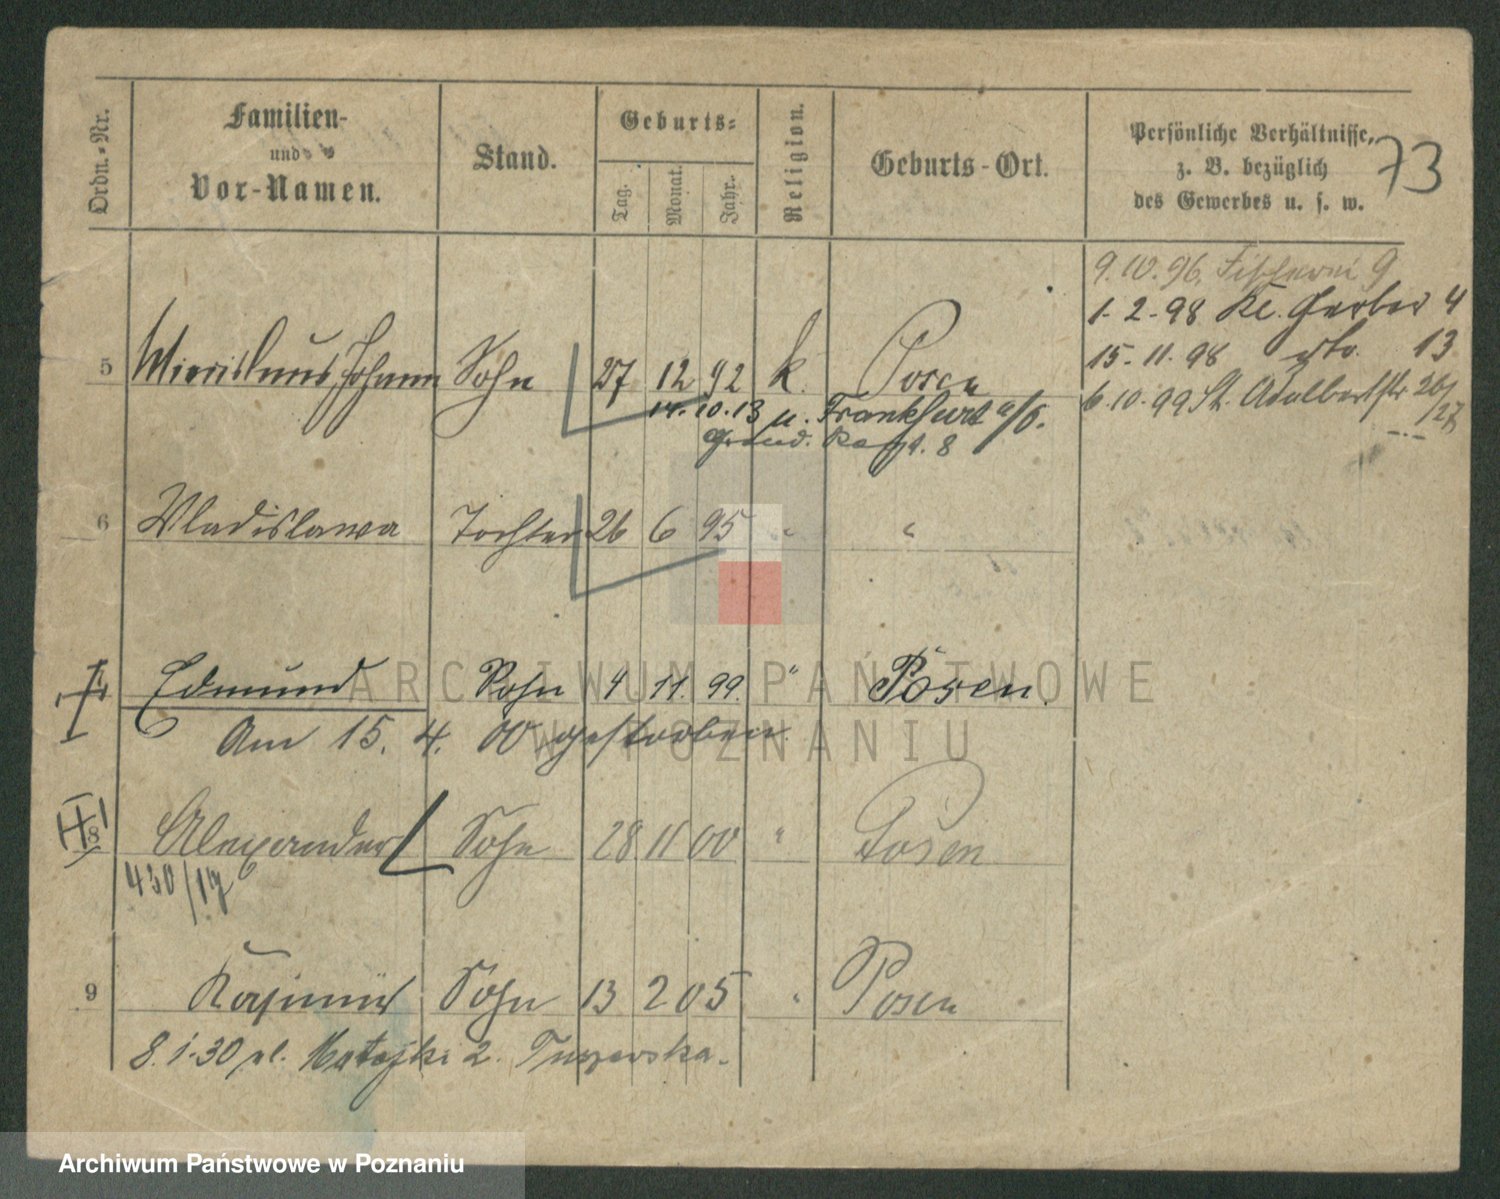 73
Ordn.-Nr.
Familien-
und
Vor-Namen.
Stand.
Geburts-
Tag.
Monat.
Jahr.
Religion.
Geburts-Ort.
Persönliche Verhältnisse,
z. B. bezüglich
des Gewerbes u. s. w.
9.10.96. Fischerei 9
1.2.98 Kl. Gerber 4
15.11.98 dto. 13
6.10.99 St. Adalbertstr 26/27
5 Johann Sohn 27 12 92 k. Posen
14.10.13 n. Frankfurt a/O.
Grend. Regt. 8
6 Wladislawa Tochter 26 6 95 " "
Edmund Sohn 4 11. 99. " Posen
Am 15. 4. 00 gestorben.
8 Alexander Sohn 28 11 00 " Posen
430/17
9 Kasimir Sohn 13 2 05 " Posen
8.1.30 ul. Matejki 2.
ARCHIWUM PAŃSTWOWE
W POZNANIU
Archiwum Państwowe w Poznaniu